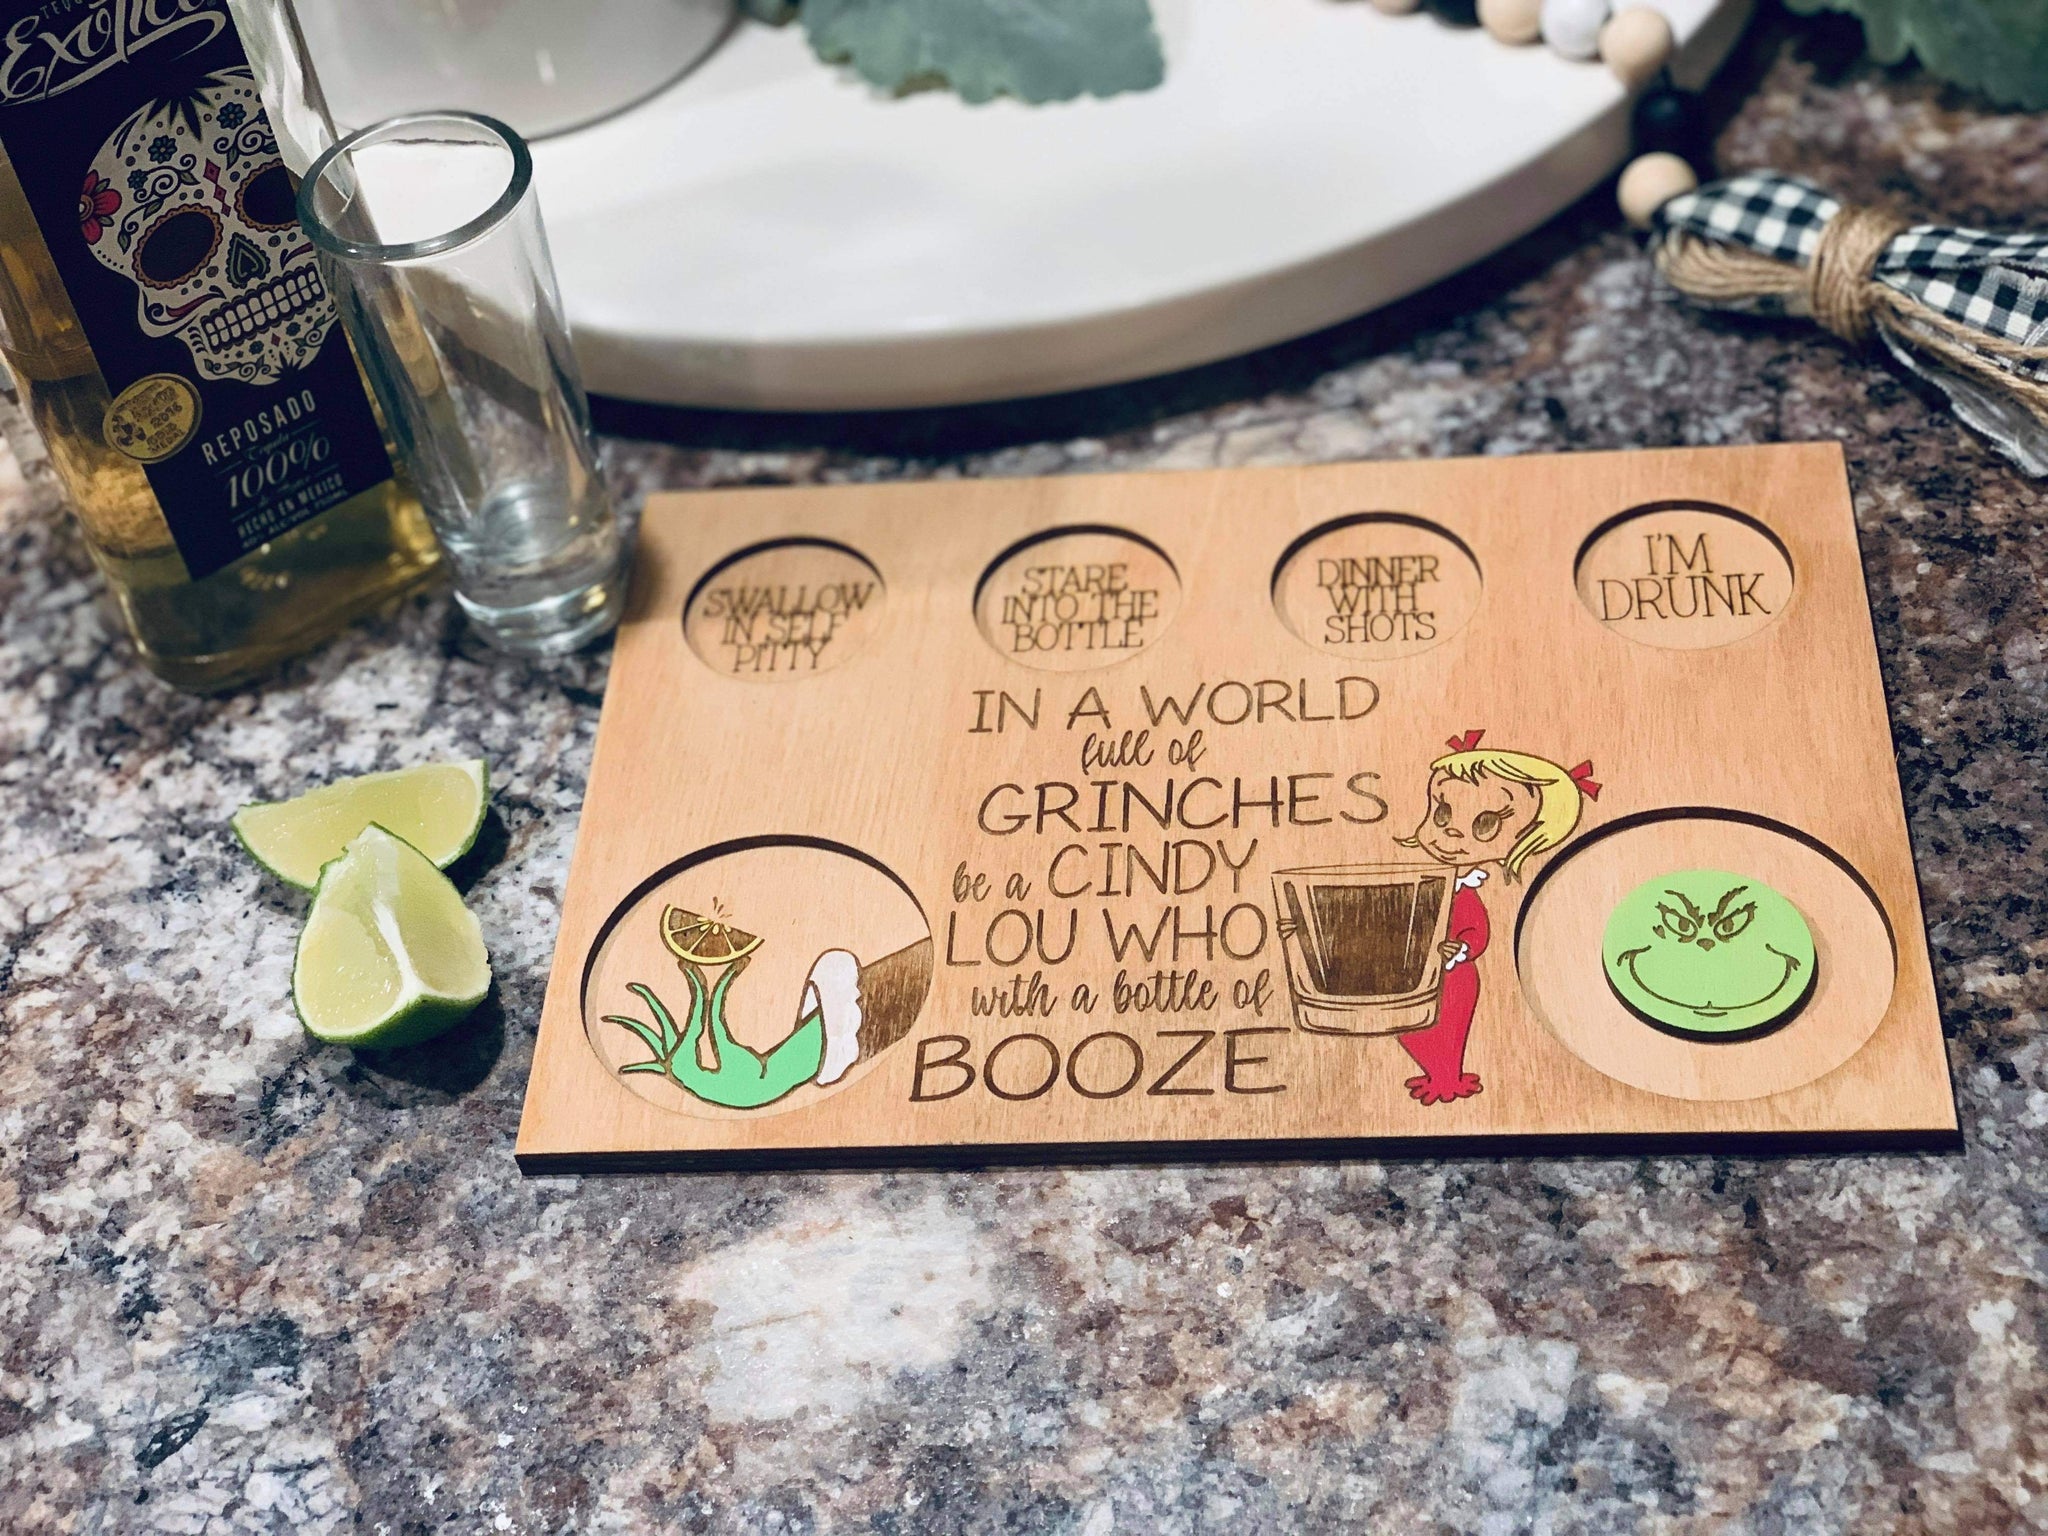 TEQUILA
Exotico
REPOSADO
Tequila
100%
de Agave
HECHO EN MEXICO
2016
GOLD
MEDAL
SWALLOW
IN SELF
PITTY
STARE
INTO THE
BOTTLE
DINNER
WITH
SHOTS
I'M
DRUNK
IN A WORLD
full of
GRINCHES
be a CINDY
LOU WHO
with a bottle of
BOOZE